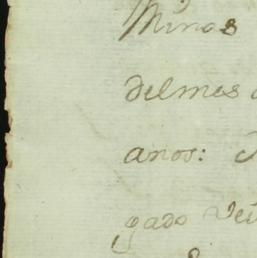 Minas
delmes
anos:
gado Vei